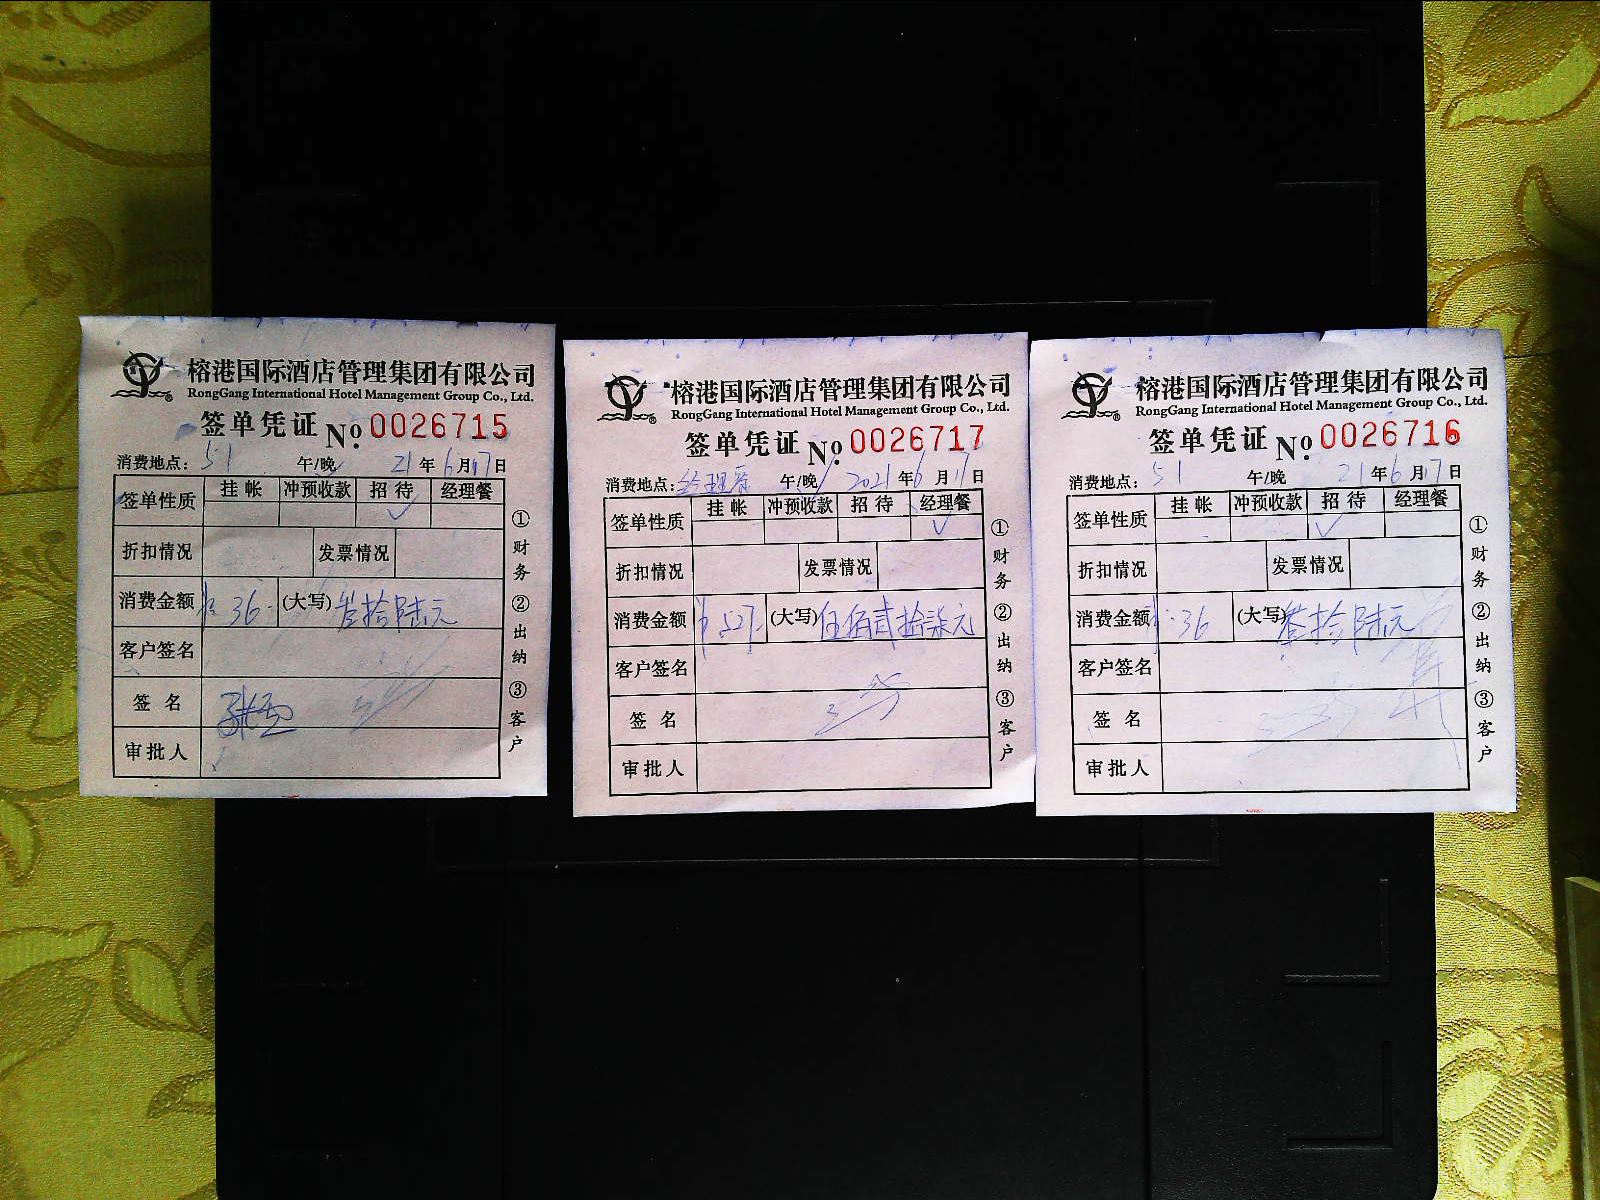 榕港国际酒店管理集团有限公司
RongGang International Hotel Management Group Co., Ltd.
签单凭证 No. 0026715
消费地点: 51 午/晚 21 年 6 月 17 日
签单性质 挂帐 冲预收款 招待 经理餐
✓
折扣情况 发票情况
消费金额 ¥: 36- (大写) 叁拾陆元
客户签名
签名
审批人
①财务 ②出纳 ③客户
榕港国际酒店管理集团有限公司
RongGang International Hotel Management Group Co., Ltd.
签单凭证 No. 0026717
消费地点: 经理餐 午/晚 2021 年 6 月 17 日
签单性质 挂帐 冲预收款 招待 经理餐
✓
折扣情况 发票情况
消费金额 ¥527- (大写) 伍佰贰拾柒元
客户签名
签名
审批人
①财务 ②出纳 ③客户
榕港国际酒店管理集团有限公司
RongGang International Hotel Management Group Co., Ltd.
签单凭证 No. 0026716
消费地点: 51 午/晚 21 年 6 月 17 日
签单性质 挂帐 冲预收款 招待 经理餐
✓
折扣情况 发票情况
消费金额 ¥: 36 (大写) 叁拾陆元
客户签名
签名
审批人
①财务 ②出纳 ③客户